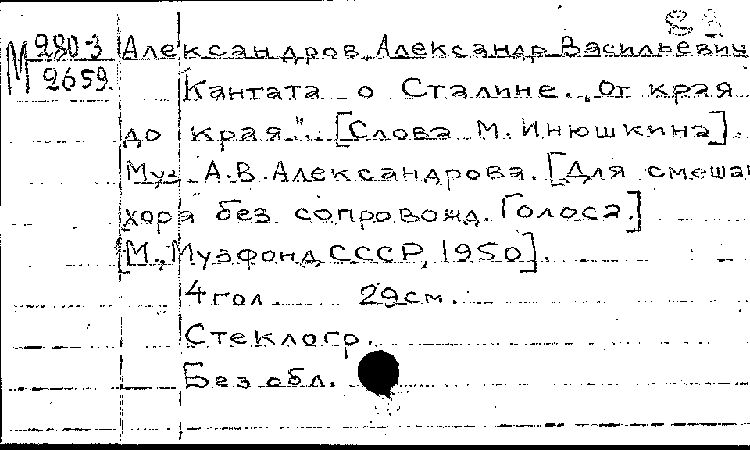 М 280-3
2659.
Александров, Александр Васильевич
Кантата о Сталине. „От края
до края". [Слова М. Инюшкина].
Муз. А.В. Александрова. [Для смешан
хора без сопровожд. Голоса.]
[М., Музфонд СССР, 1950].
4 гол. 29 см.
Стеклогр.
Без обл.